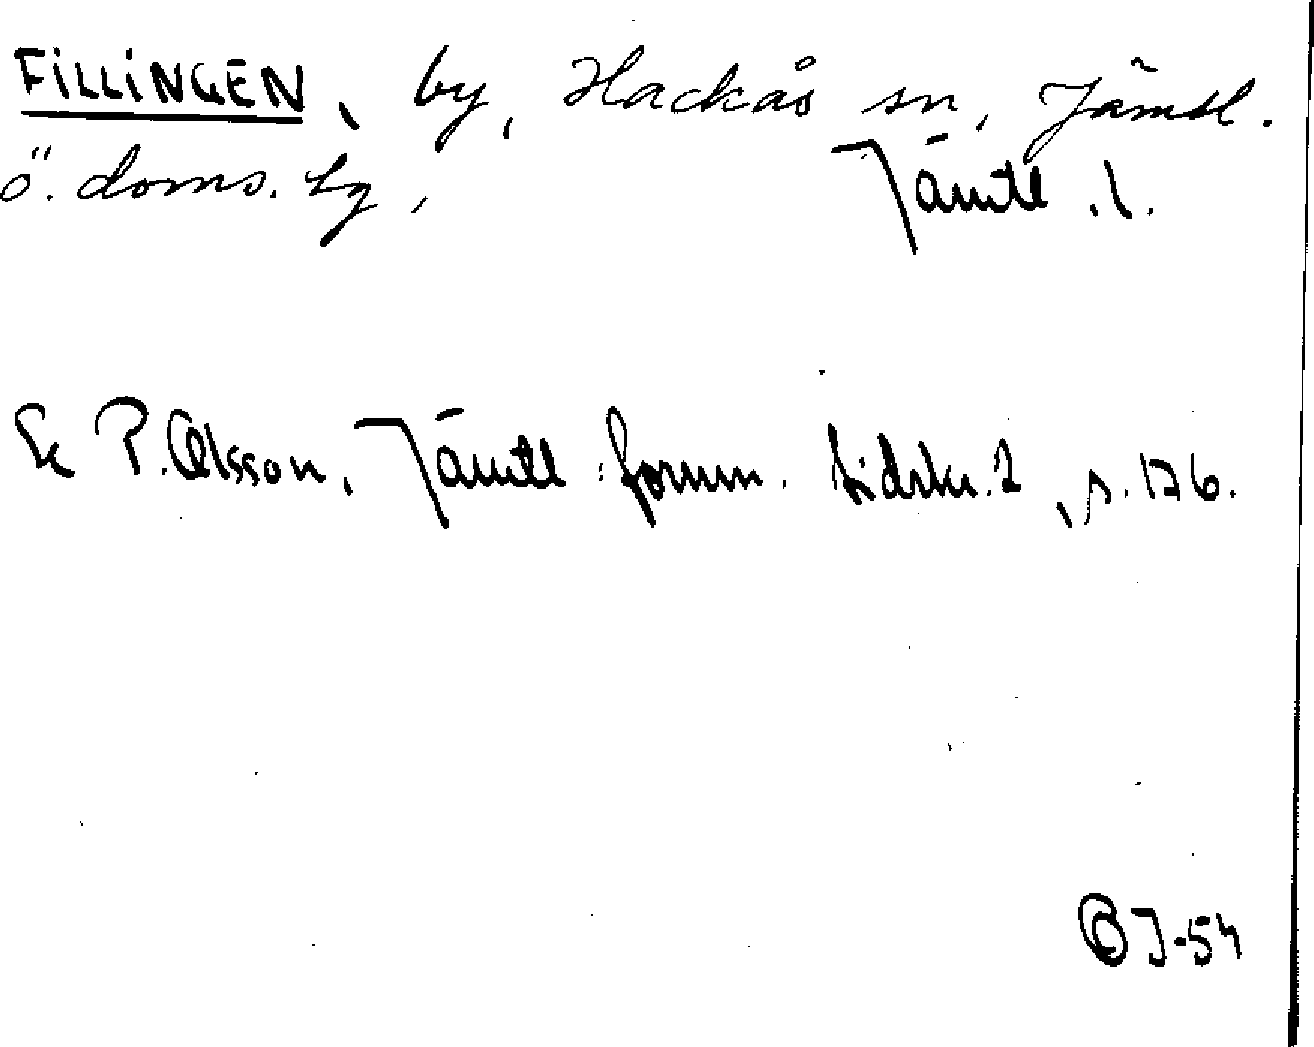 FILLINGEN, by, Hackås sn, Jämtl.
ö. doms. sg, Jämtl. l.
Se P. Olsson, Jämtl. fornm. tidskr. 2, s. 176.
J-54